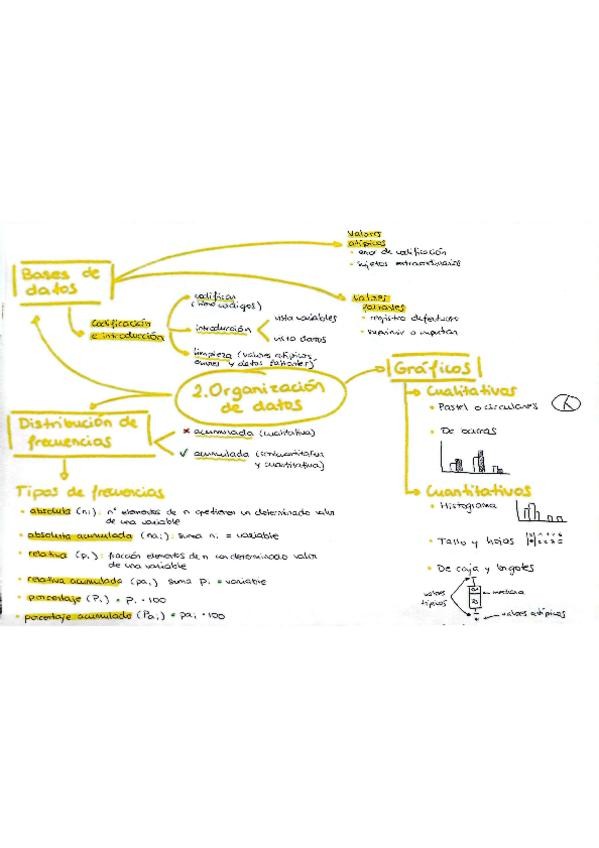 Valores
atípicos
• error de codificación
• sujetos extraordinarios
Bases de
datos
Valores
faltantes
• registro defectuoso
• suprimir o imputar
Codificación
e introducción
codificar
introducción
vista variables
vista datos
limpieza (valores atípicos,
y datos faltantes)
2. Organización
de datos
Gráficos
Cualitativos
• Pastel o circulares
• De barras
Cuantitativos
• Histograma
• Tallo y hojas
• De caja y bigotes
valores
típicos
mediana
valores atípicos
Distribución de
frecuencias
× acumulada (cualitativa)
✓ acumulada (
y cuantitativa)
Tipos de frecuencias
• absoluta (ni): nº elementos de n que tienen un determinado valor
de una variable
• absoluta acumulada (nai): suma ni = variable
• relativa (pi): fracción elementos de n un determinado valor
de una variable
• relativa acumulada (pai) suma pi = variable
• porcentaje (Pi) = pi · 100
• porcentaje acumulado (Pai) = pai · 100